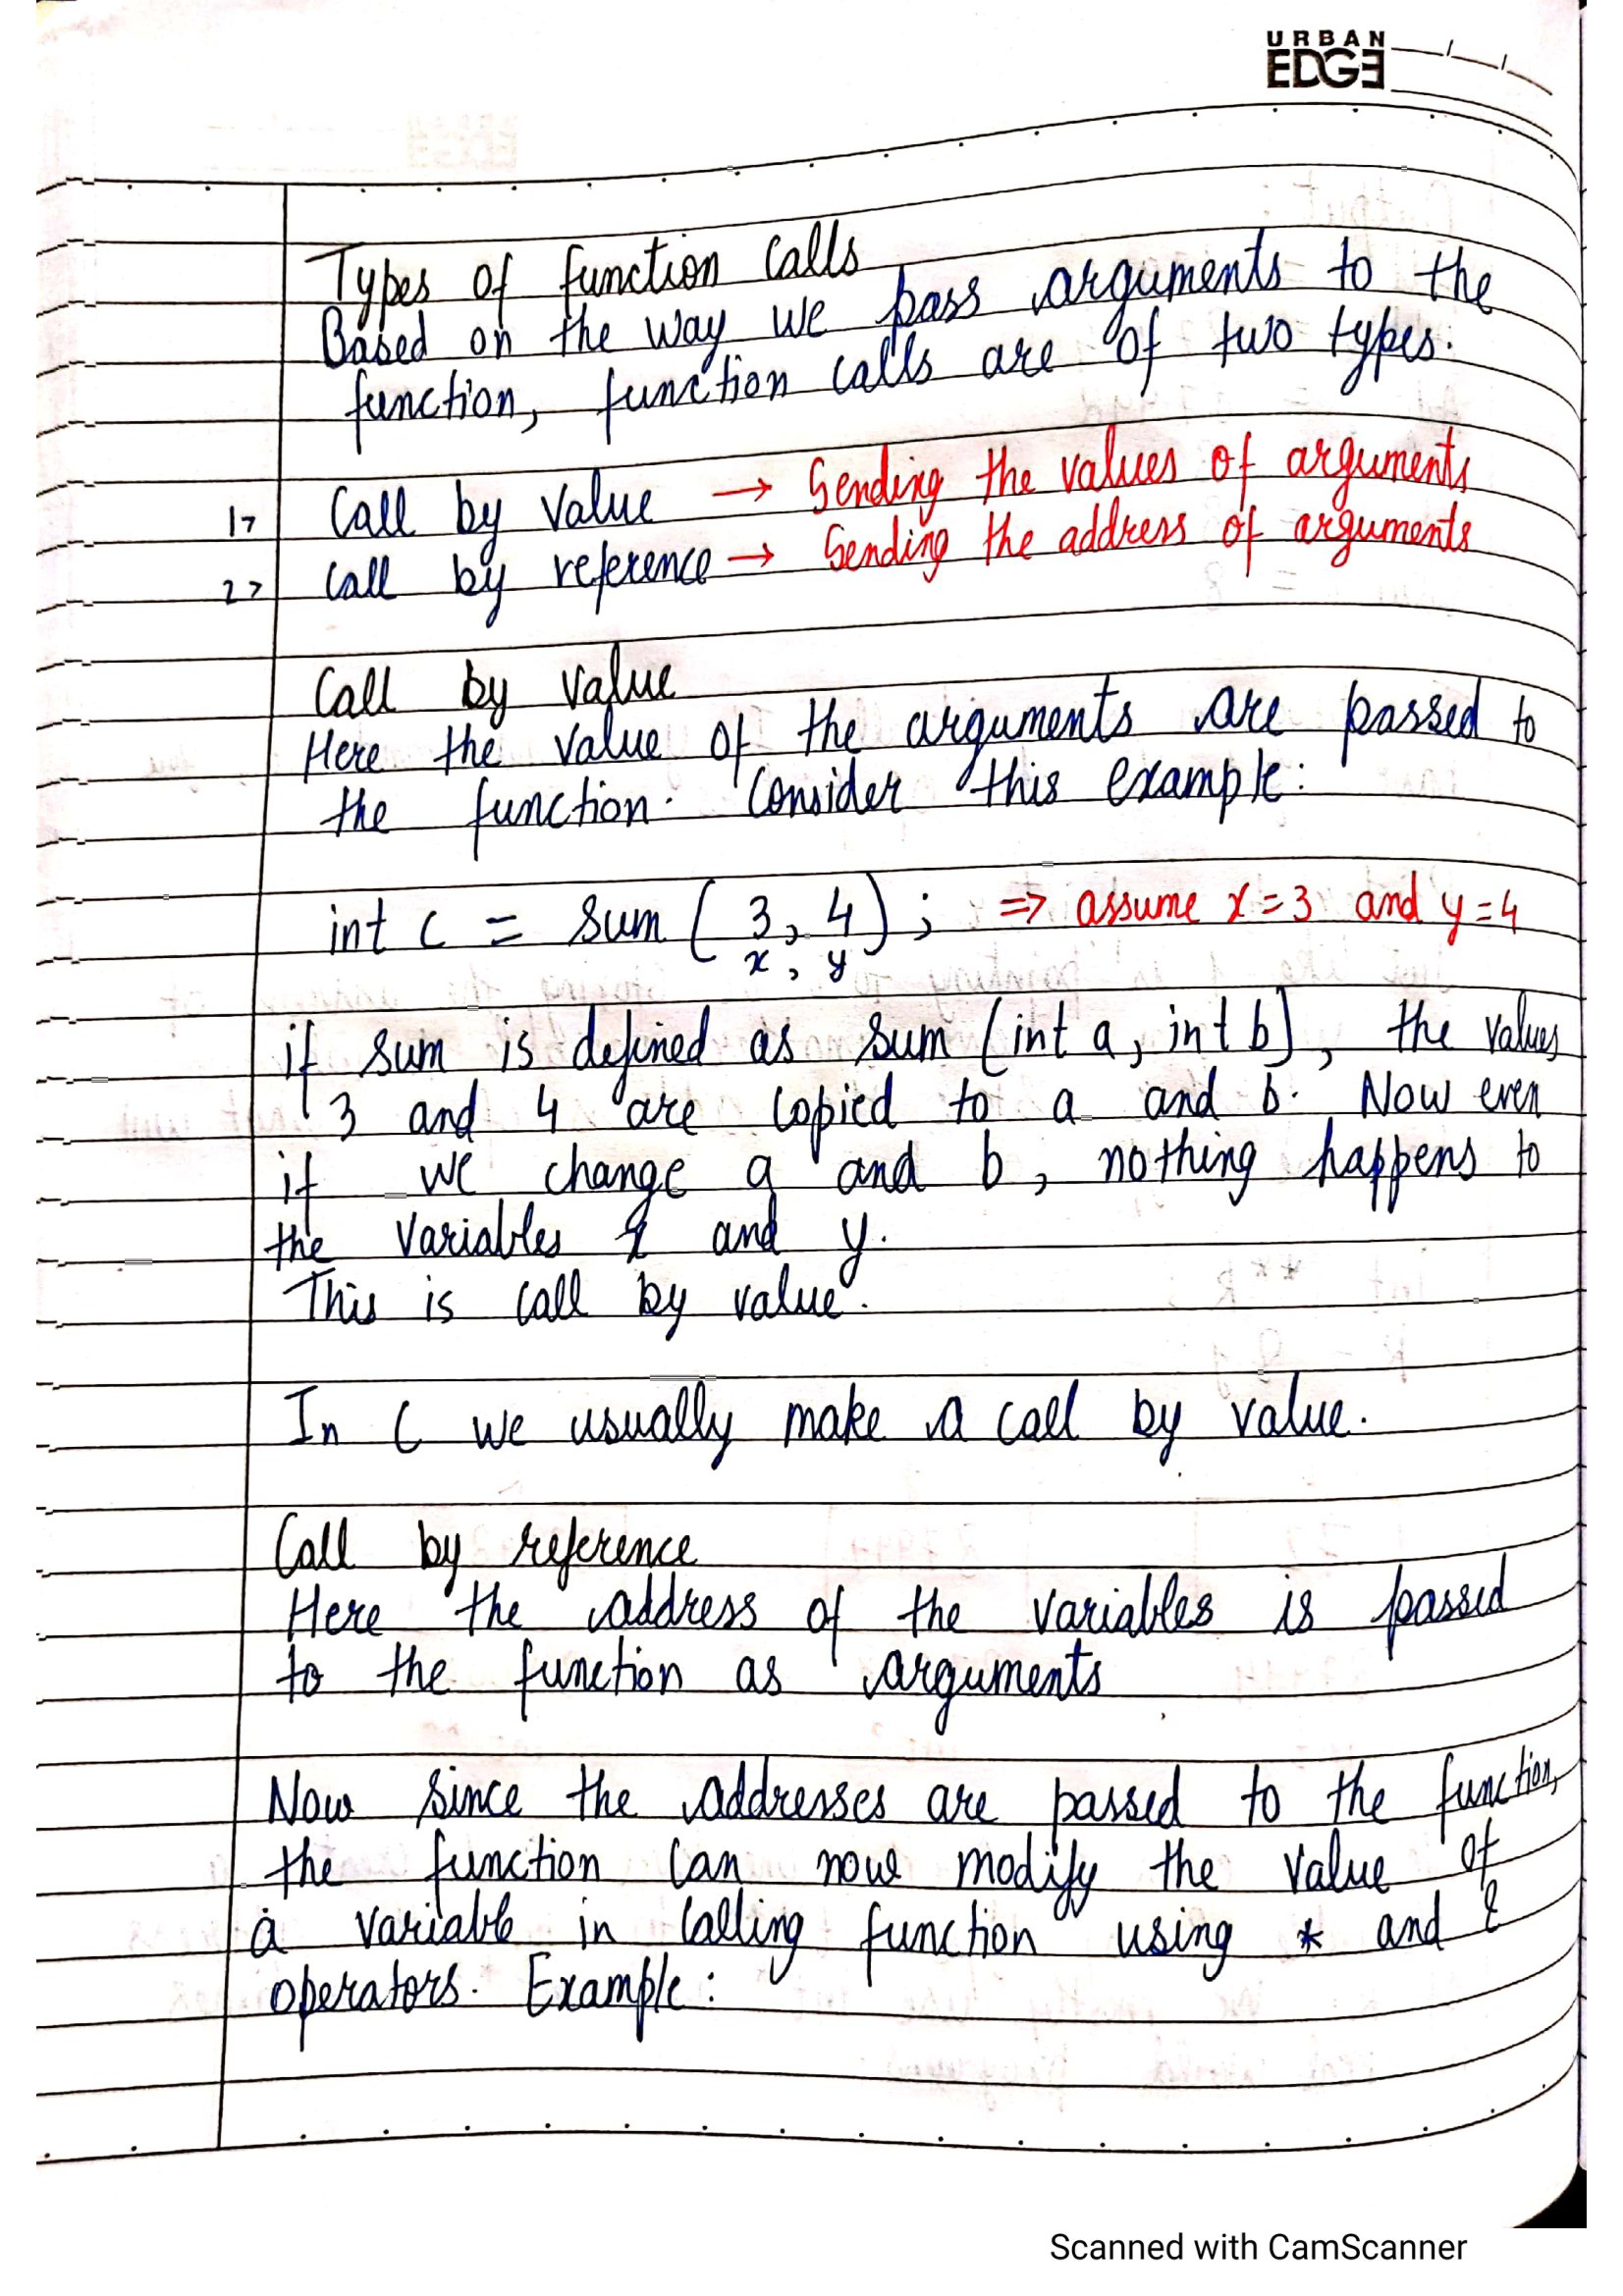 URBAN
EDGE
Types of function calls
Based on the way we pass arguments to the
function, function calls are of two types.
1> Call by value → Sending the values of arguments
2> Call by reference → Sending the address of arguments
Call by value
Here the value of the arguments are passed to
the function. Consider this example:
int c = sum (3, 4); ⇒ assume x=3 and y=4
x, y
if sum is defined as sum (int a, int b), the values
3 and 4 are copied to a and b. Now even
if we change a and b, nothing happens to
the variables x and y.
This is call by value.
In C we usually make a call by value.
Call by reference
Here the address of the variables is passed
to the function as arguments
Now since the addresses are passed to the function,
the function can now modify the value of
a variable in calling function using * and &
operators. Example:
Scanned with CamScanner